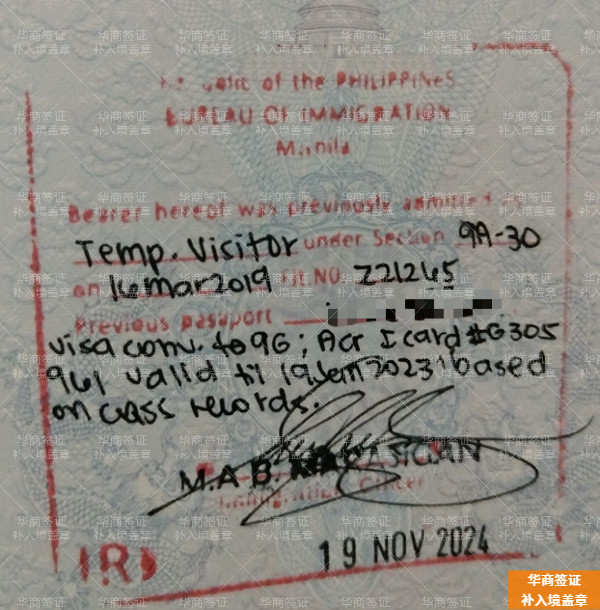 Republic of the PHILIPPINES
BUREAU OF IMMIGRATION
Manila
Bearer hereof was previously admitted as
Temp. Visitor under Section 9A-30
on 16mar2019 Flt NO. Z21245
Previous passport
visa conv. to 9G; Acr I card #G305
961 valid til 19Jan2023 based
on class records.
M.A B.
Immigration Officer
(R)
19 NOV 2024
华商签证
补入境盖章